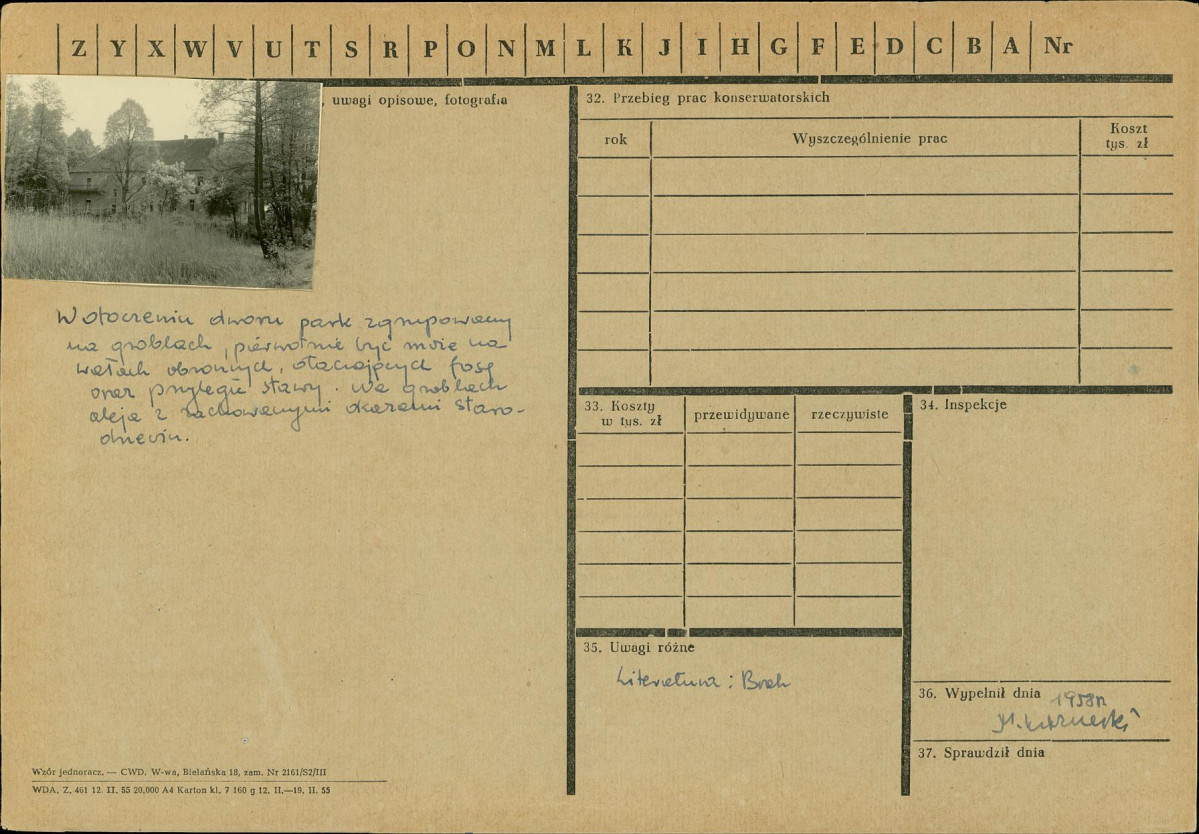 Z Y X W V U T S R P O N M L K J I H G F E D C B A Nr
, uwagi opisowe, fotografia
W otoczeniu dworu park zgrupowany
na groblach, pierwotnie być może na
wałach obronnych, otaczających fosę
oraz przyległe stawy. Na groblach
aleja z zachowanymi okazami staro-
drzewiu.
32. Przebieg prac konserwatorskich
rok Wyszczególnienie prac Koszt
tys. zł
33. Koszty
w tys. zł
przewidywane rzeczywiste
34. Inspekcje
35. Uwagi różne
Literatura: Brak
36. Wypełnił dnia
1958 r
37. Sprawdził dnia
Wzór jednoracz. — CWD, W-wa, Bielańska 18, zam. Nr 2161/S2/III
WDA. Z. 461 12. II. 55 20.000 A4 Karton kl. 7 160 g 12. II.—19. II. 55